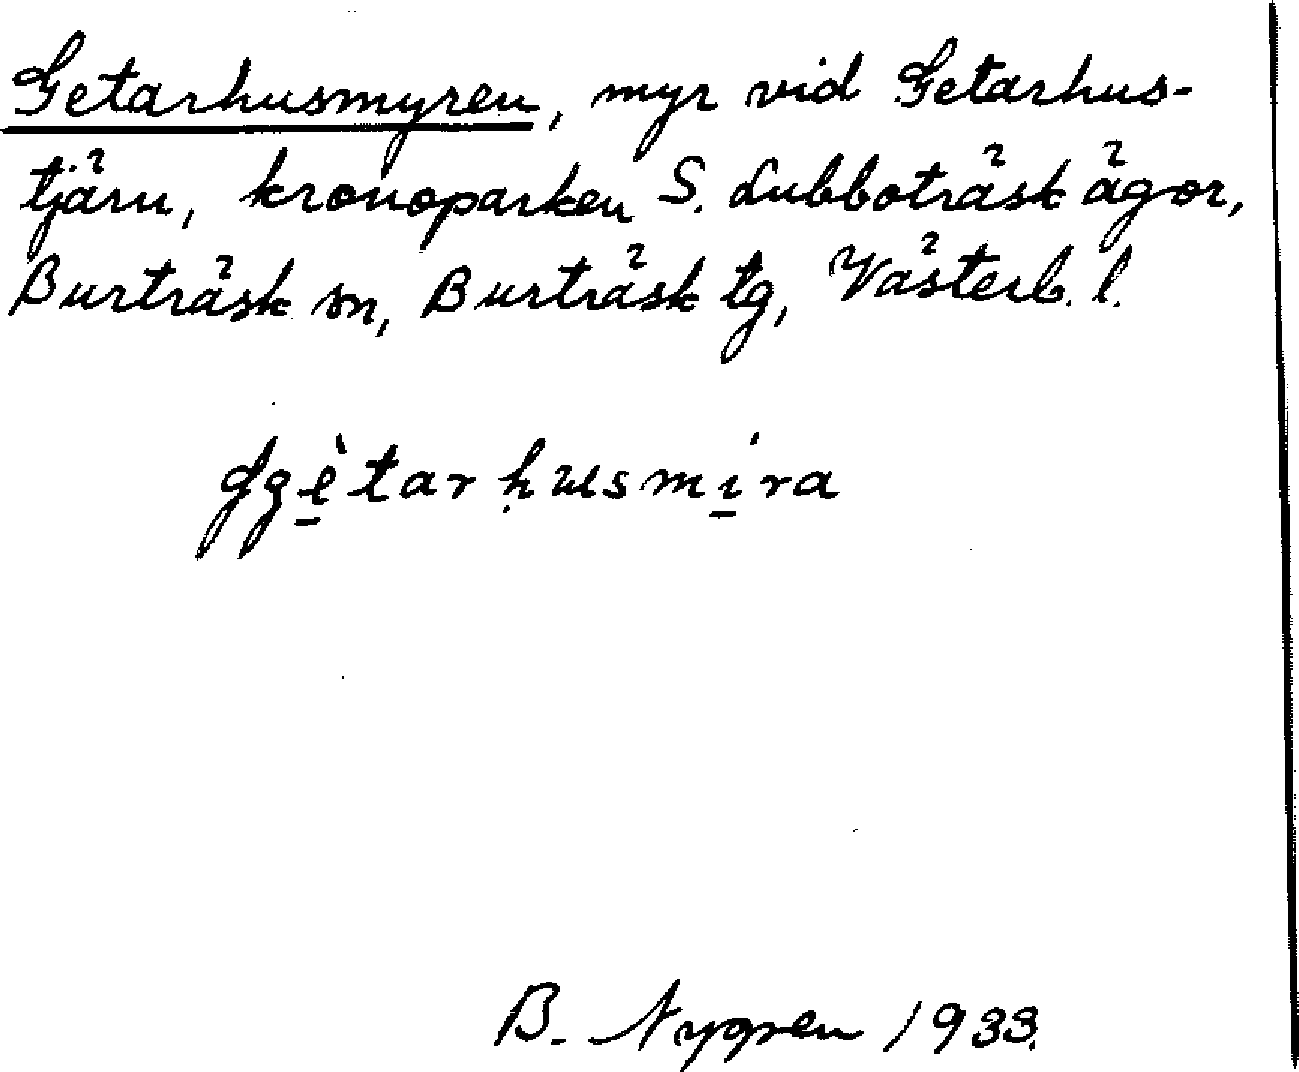 Getarhusmyren, myr vid Getarhus-
tjärn, kronoparken S. Lubboträsk ägor,
Burträsk sn, Burträsk tg, Västerb. l.
B. Nygren 1933.